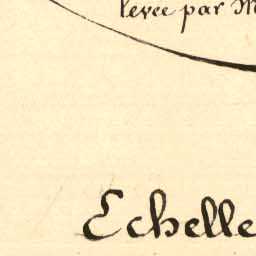 levée par M
Echelle